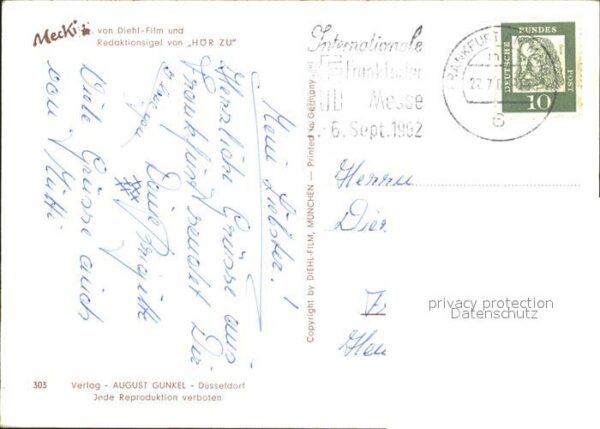 Mecki von Diehl-Film und
Redaktionsigel von „HÖR ZU"
Mein Liebster!
Herzliche Grüsse aus
Frankfurt sendet Dir
Deine Brigitte
xxx
Viele Grüsse auch
von Mutti
303 Verlag - AUGUST GUNKEL - Düsseldorf
Jede Reproduktion verboten
Copyright by DIEHL-FILM, MÜNCHEN — Printed in Germany
Internationale
Frankfurter
Messe
- 6. Sept. 1962
FRANKFURT
DEUTSCHE BUNDES POST
10
Herrn
Dier
privacy protection
Datenschutz